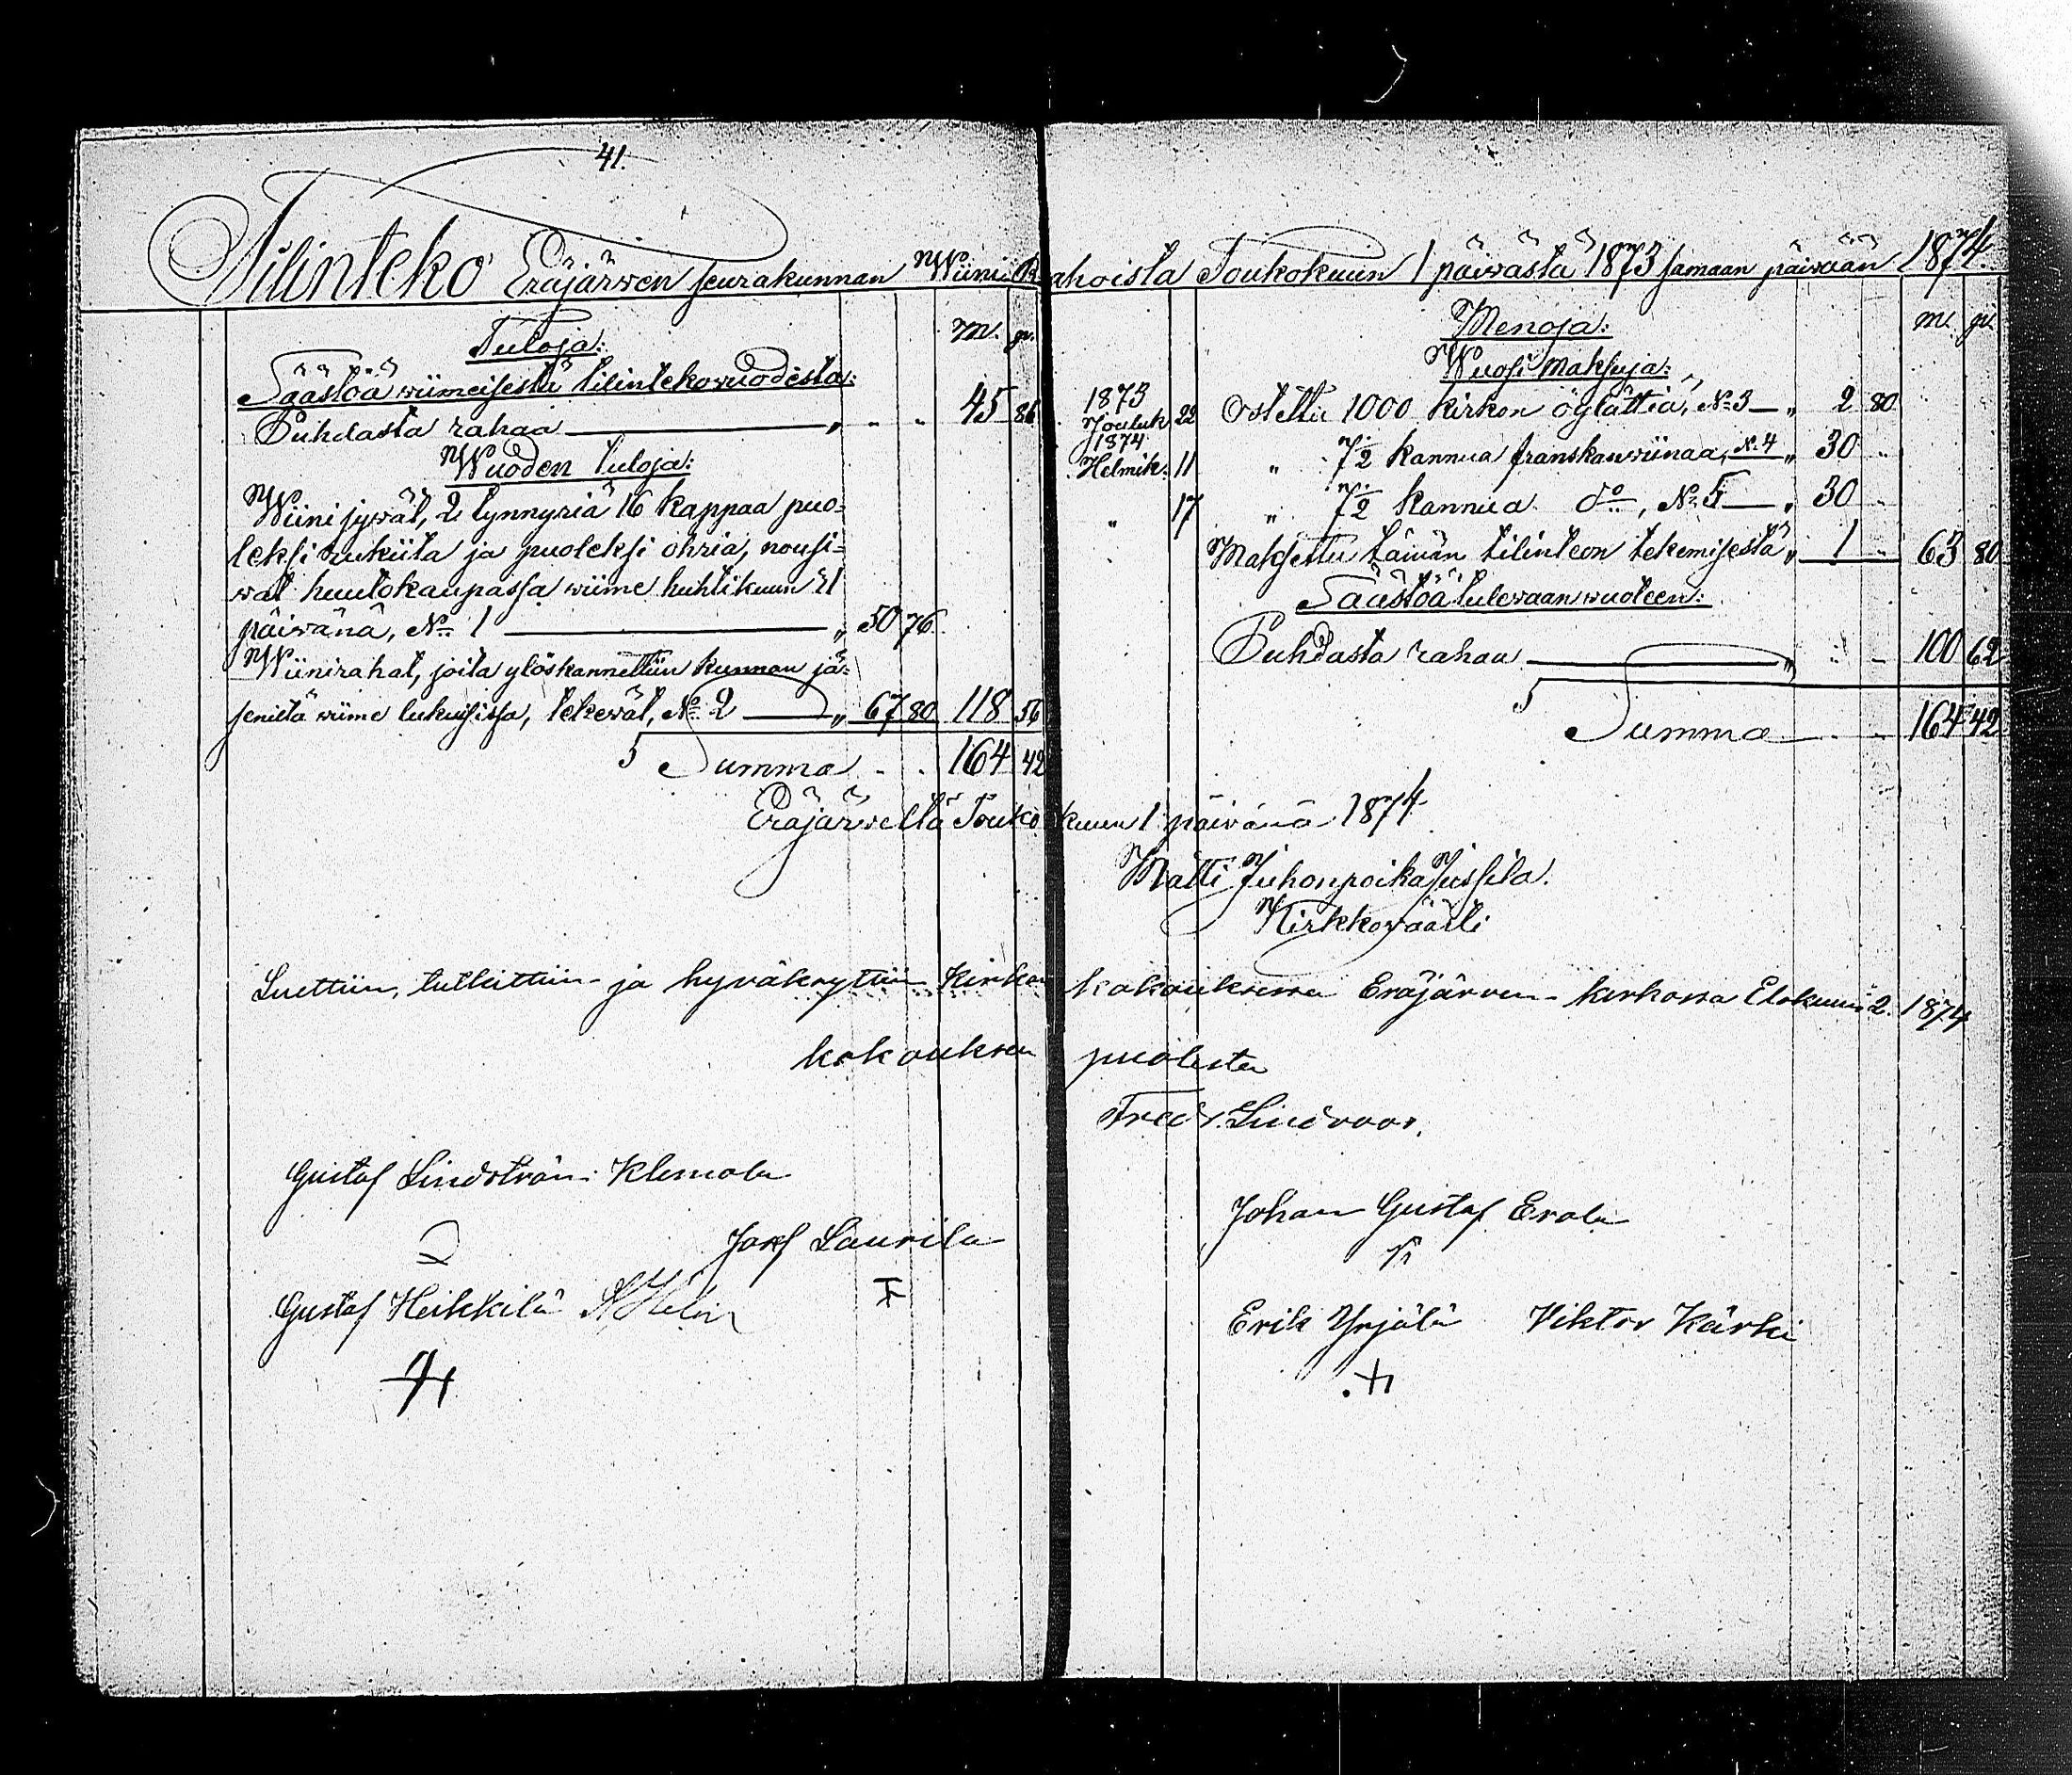 41.
Tilinteko Eräjärwen seurakunnan Wiini Rahoista Toukokuun 1 päiwästä 1873 samaan päiwään 1874.
m. p.
Tuloja:
Säästöä wiimeisestä tilintekowuodesta:
Puhdasta rahaa — „ „ „ 45 86
Wuoden tuloja:
Wiini jywät, 2 tynnyriä 16 kappaa puo=
leksi rukiita ja puoleksi ohria, nousi=
wat huutokaupassa wiime huhtikuun
päiwänä, No 1 — „ 50 76
Wiinirahat, joita ylöskannettiin kunnan jä=
seniltä wiime lukuisissa, tekewät, No 2 — „ 67 80 118 56
Summa . . 164 42
m. p.
Menoja:
Wuosi maksuja:
1873
Jouluk. 22 Ostettu 1000 kirkon öylättiä, No 3 — „ 2 80
1874
Helmik. 11 „ 7½ kannua franskanwiinaa, No 4 „ 30 „
„ 17 „ 7½ kannua do, No 5 — „ 30 „
Maksettu tämän tilinteon tekemisestä „ 1 „ 63 80
Säästöä tulewaan wuoteen:
Puhdasta rahaa — „ „ „ 100 62
Summa 164 42
Eräjärweltä Toukokuun 1 päiwänä 1874
Matti Juhonpoika Jussila.
Kirkkowäärti
Luettiin, tutkittiin ja hyväksyttiin Kirkon kokouksessa Eräjärven kirkossa Elokuun 2. 1874
kokouksen puolesta
Fredr. Lindroos.
Gustaf Lindström Klemola
Josef Laurila
Gustaf Heikkilä A Helin
Johan Gustaf Erola
Erik Yrjälä Viktor Kärki